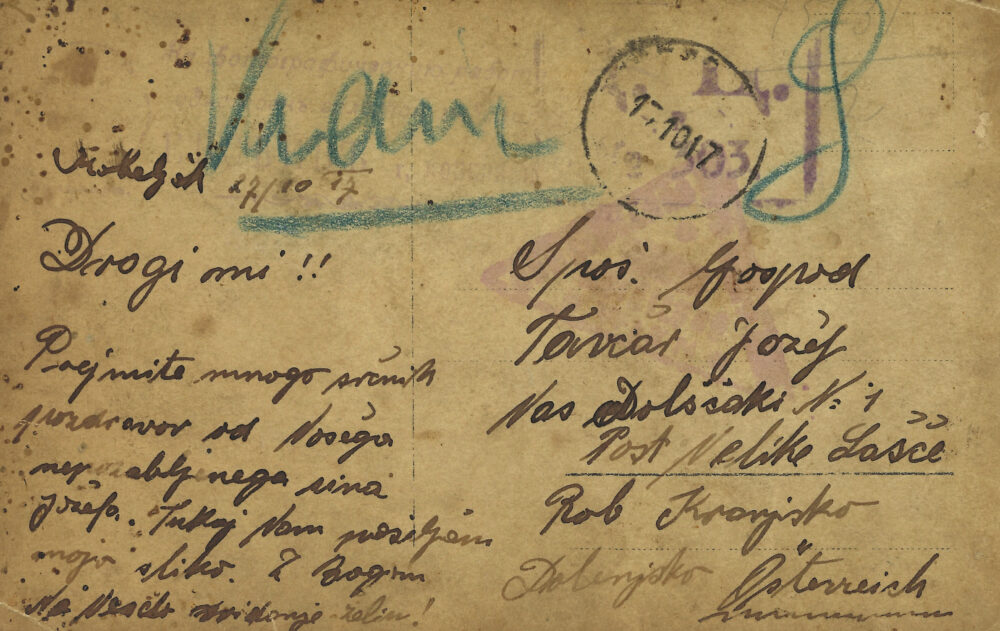 17.10 17
27/10 17
Drogi mi!!
Prejmite mnogo srčnih
pozdravov od Vašega
nepozabljenega sina
Jožefa. Tukaj Vam pošiljam
mojo sliko. Z Bogom
Na veselo svidenje želim!
Spoš. Gospod
Tavčar Jožef
Vas Dolščaki N: 1
Post Velike Lašče
Rob Kranjsko
Dolenjsko Österreich